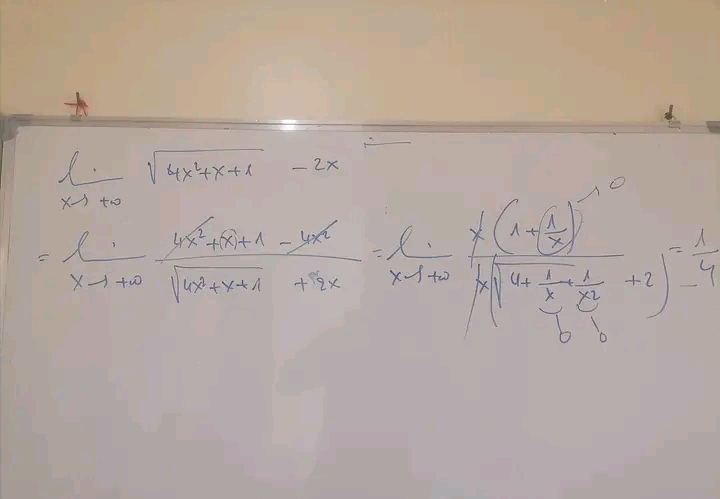 lim x→+∞ √(4x²+x+1) - 2x
= lim x→+∞ (4x²+(x)+1 - 4x²)/(√(4x²+x+1) + 2x) = lim x→+∞ x(1+(1/x)→0)/(x(√(4+1/x+1/x²) +2)) = 1/4
0 0